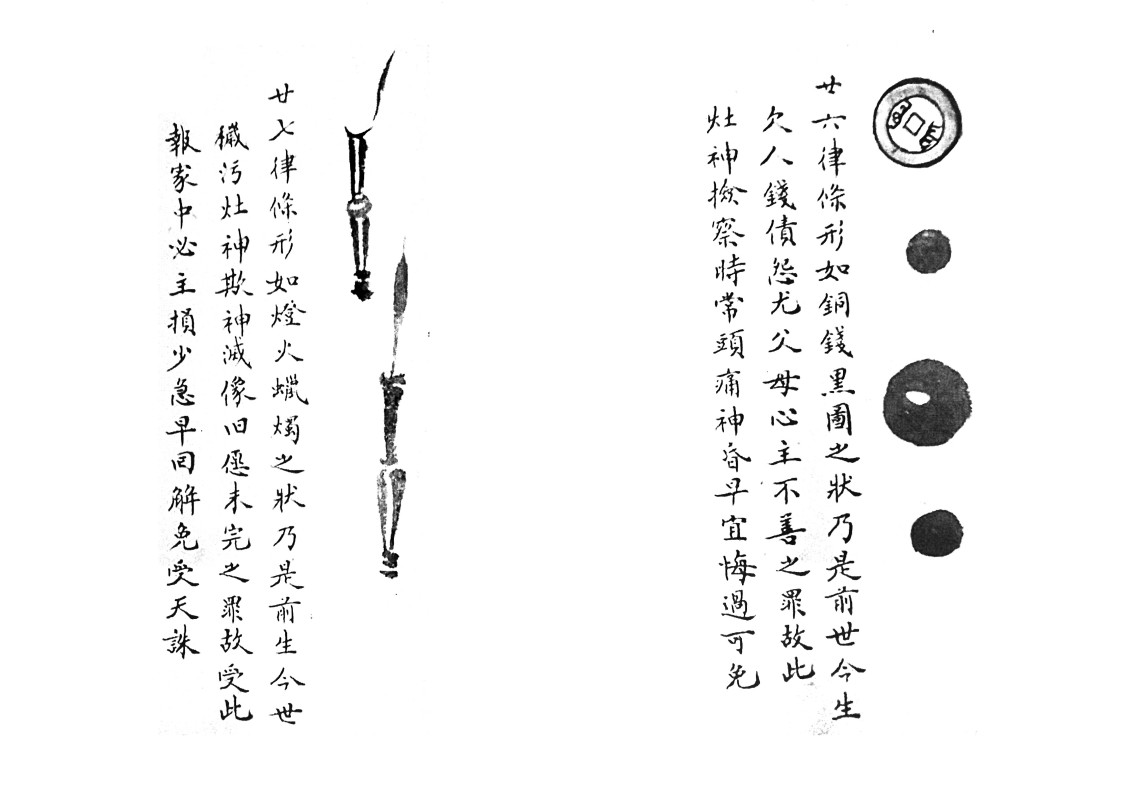 廿六律條形如銅錢黑圖之狀乃是前世今生
欠人錢債怨尤父母心主不善之罪故此
灶神撿察時常頭痛神昏早宜悔過可免
廿七律條形如燈火蠟燭之狀乃是前生今世
穢污灶神欺神滅像旧愿未完之罪故受此
報家中必主損少急早回解免受天誅